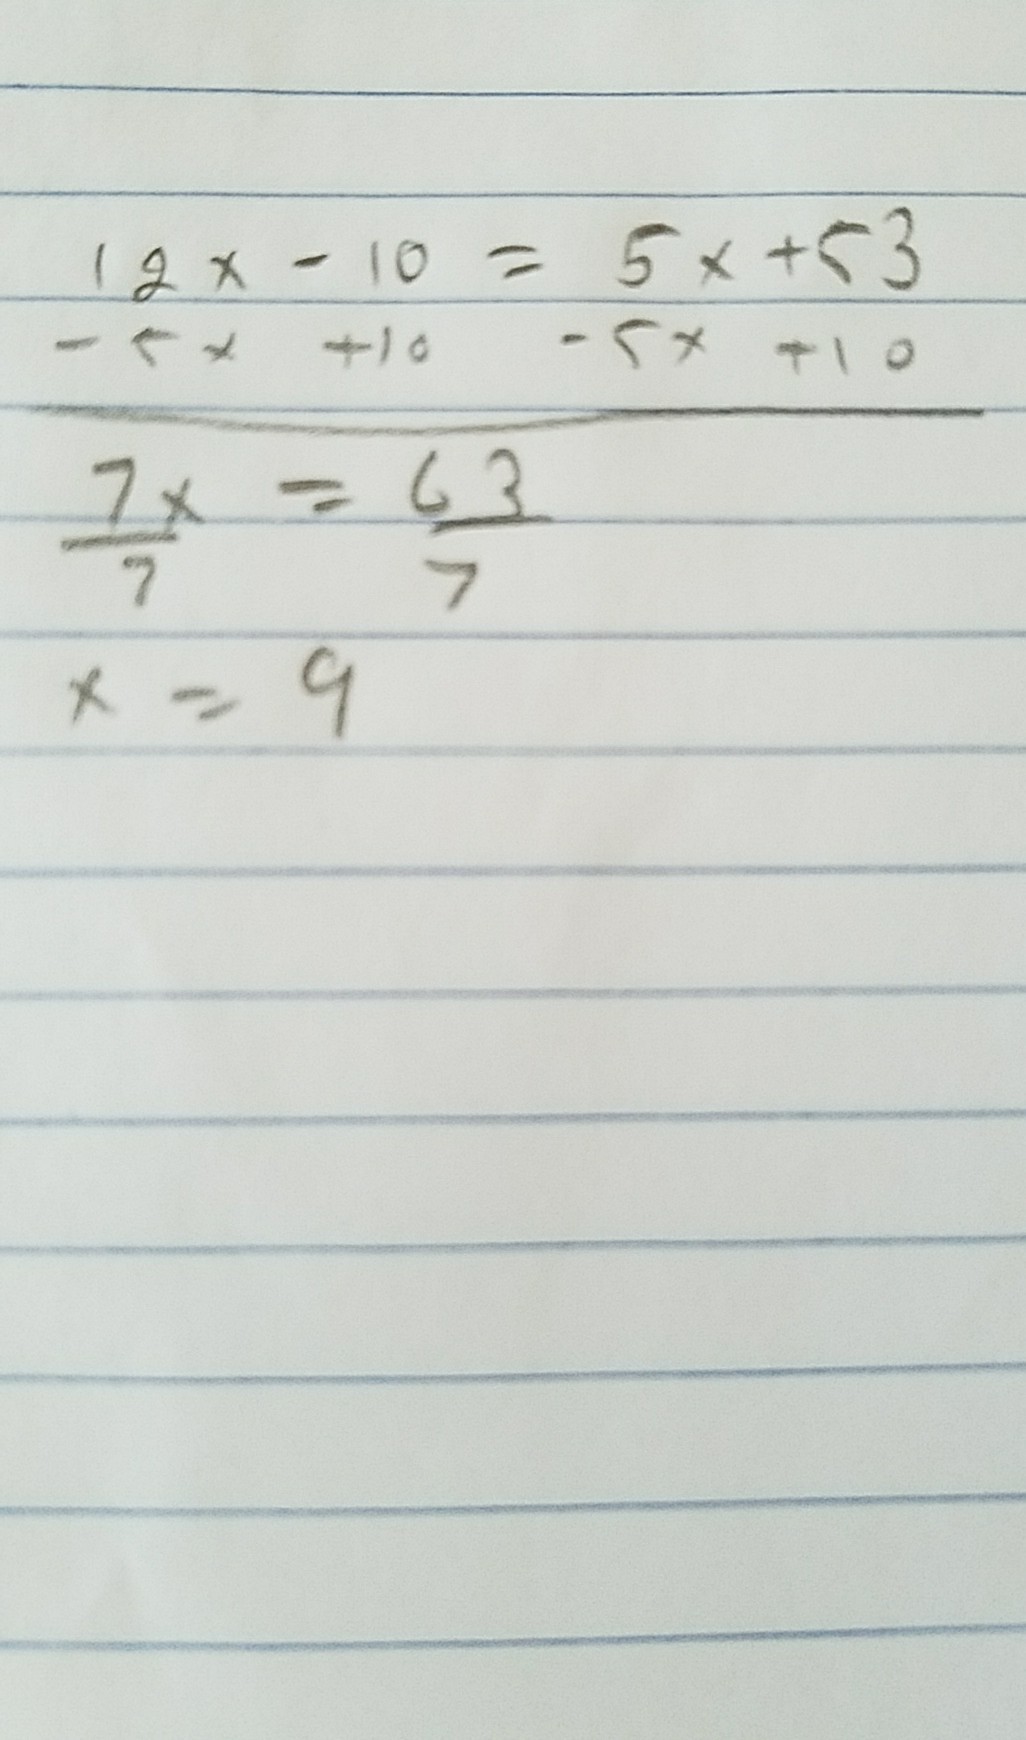 12x - 10 = 5x + 53
- 5x +10 - 5x +10
7x = 63
7 7
x = 9